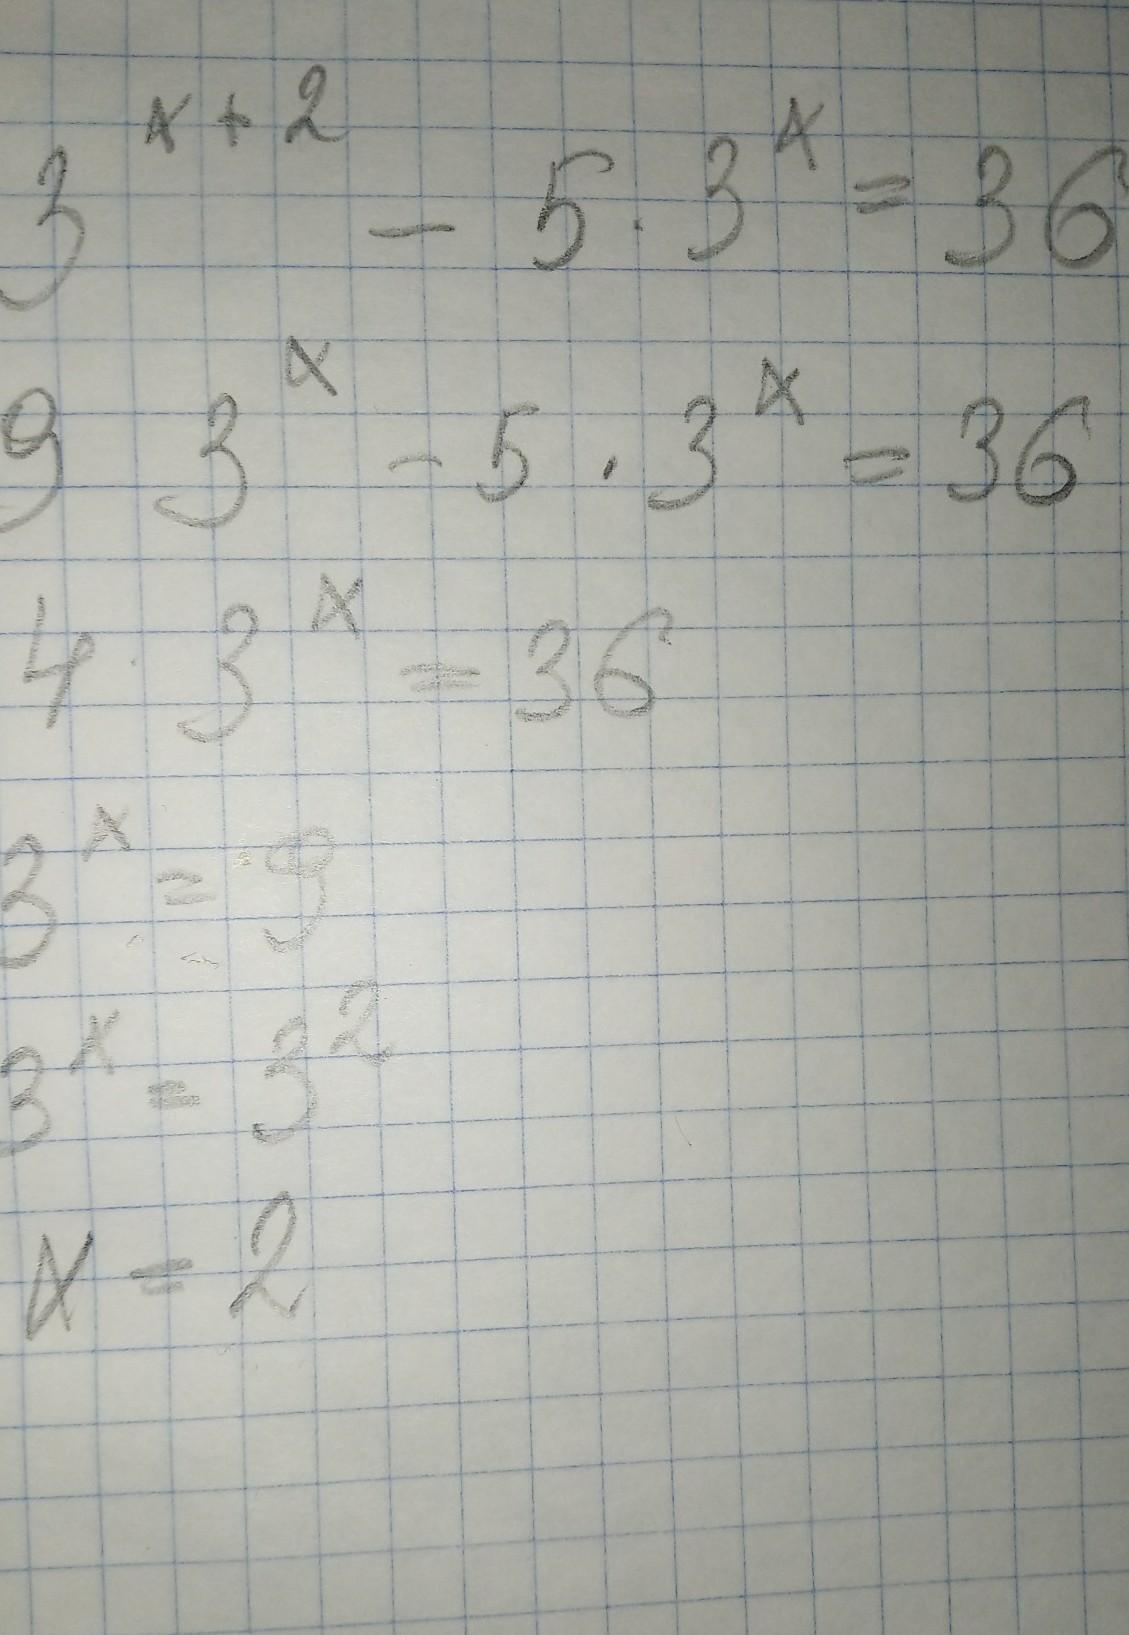 3^{x+2} - 5 · 3^x = 36
9 3^x - 5 · 3^x = 36
4 · 3^x = 36
3^x = 9
3^x = 3^2
x = 2